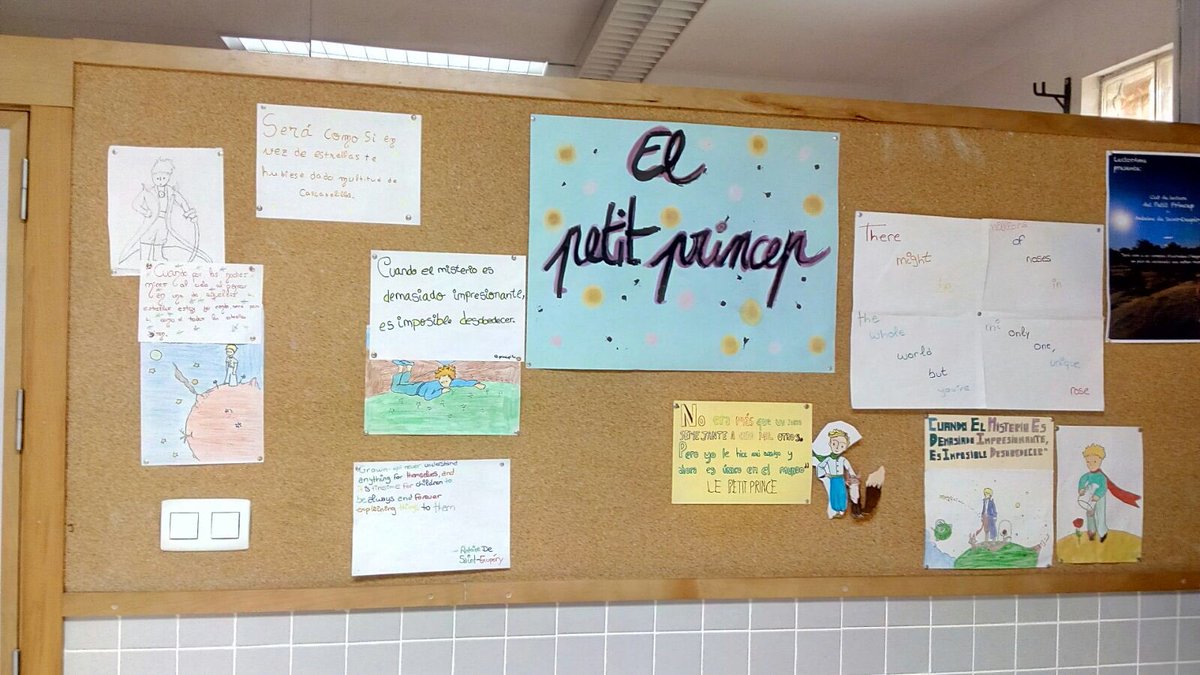 Será como si en
vez de estrellas te
hubiese dado multitud de
Cascabelillos.
Cuando por las noches
mires al cielo al pensar
en una de aquellas
estrellas estoy yo
Cuando el misterio es
demasiado impresionante,
es imposible desobedecer.
Grown-ups never understand
anything for themselves, and
it is tiresome for children to
be always and forever
explaining things to them
- Antoine De
Saint-Exupéry
El
petit princep
No era más que un zorro
SEMEJANTE A CIEN MIL OTROS.
Pero yo le hice mi amigo y
ahora es único en el mundo"
LE PETIT PRINCE
There
might
be
millions
of
roses
in
the
whole
world
but
you're
my
only
one,
unique
rose
CUANDO EL MISTERIO ES
DEMASIADO IMPRESIONANTE,
ES IMPOSIBLE DESOBEDECER"
Lectorima
presenta:
Club de lectura
del Petit Príncep
Antoine de Saint-Exupéry